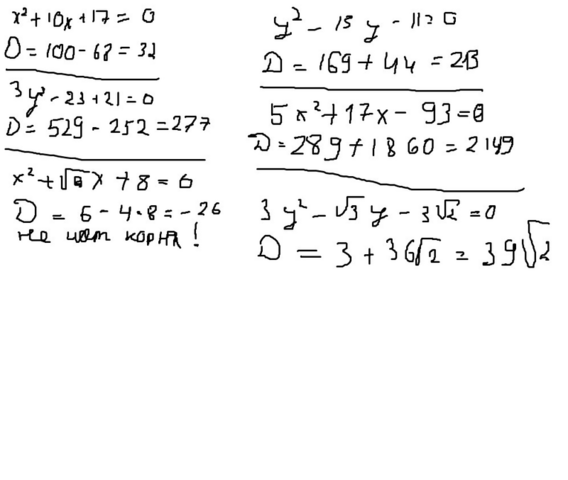 x² + 10x + 17 = 0
D = 100 - 68 = 32
3y² - 23 + 21 = 0
D = 529 - 252 = 277
x² + √6 x + 8 = 0
D = 6 - 4·8 = -26
не имет корня!
y² - 13y - 11 = 0
D = 169 + 44 = 213
5x² + 17x - 93 = 0
D = 289 + 1860 = 2149
3y² - √3 y - 3√2 = 0
D = 3 + 36√2 = 39√2